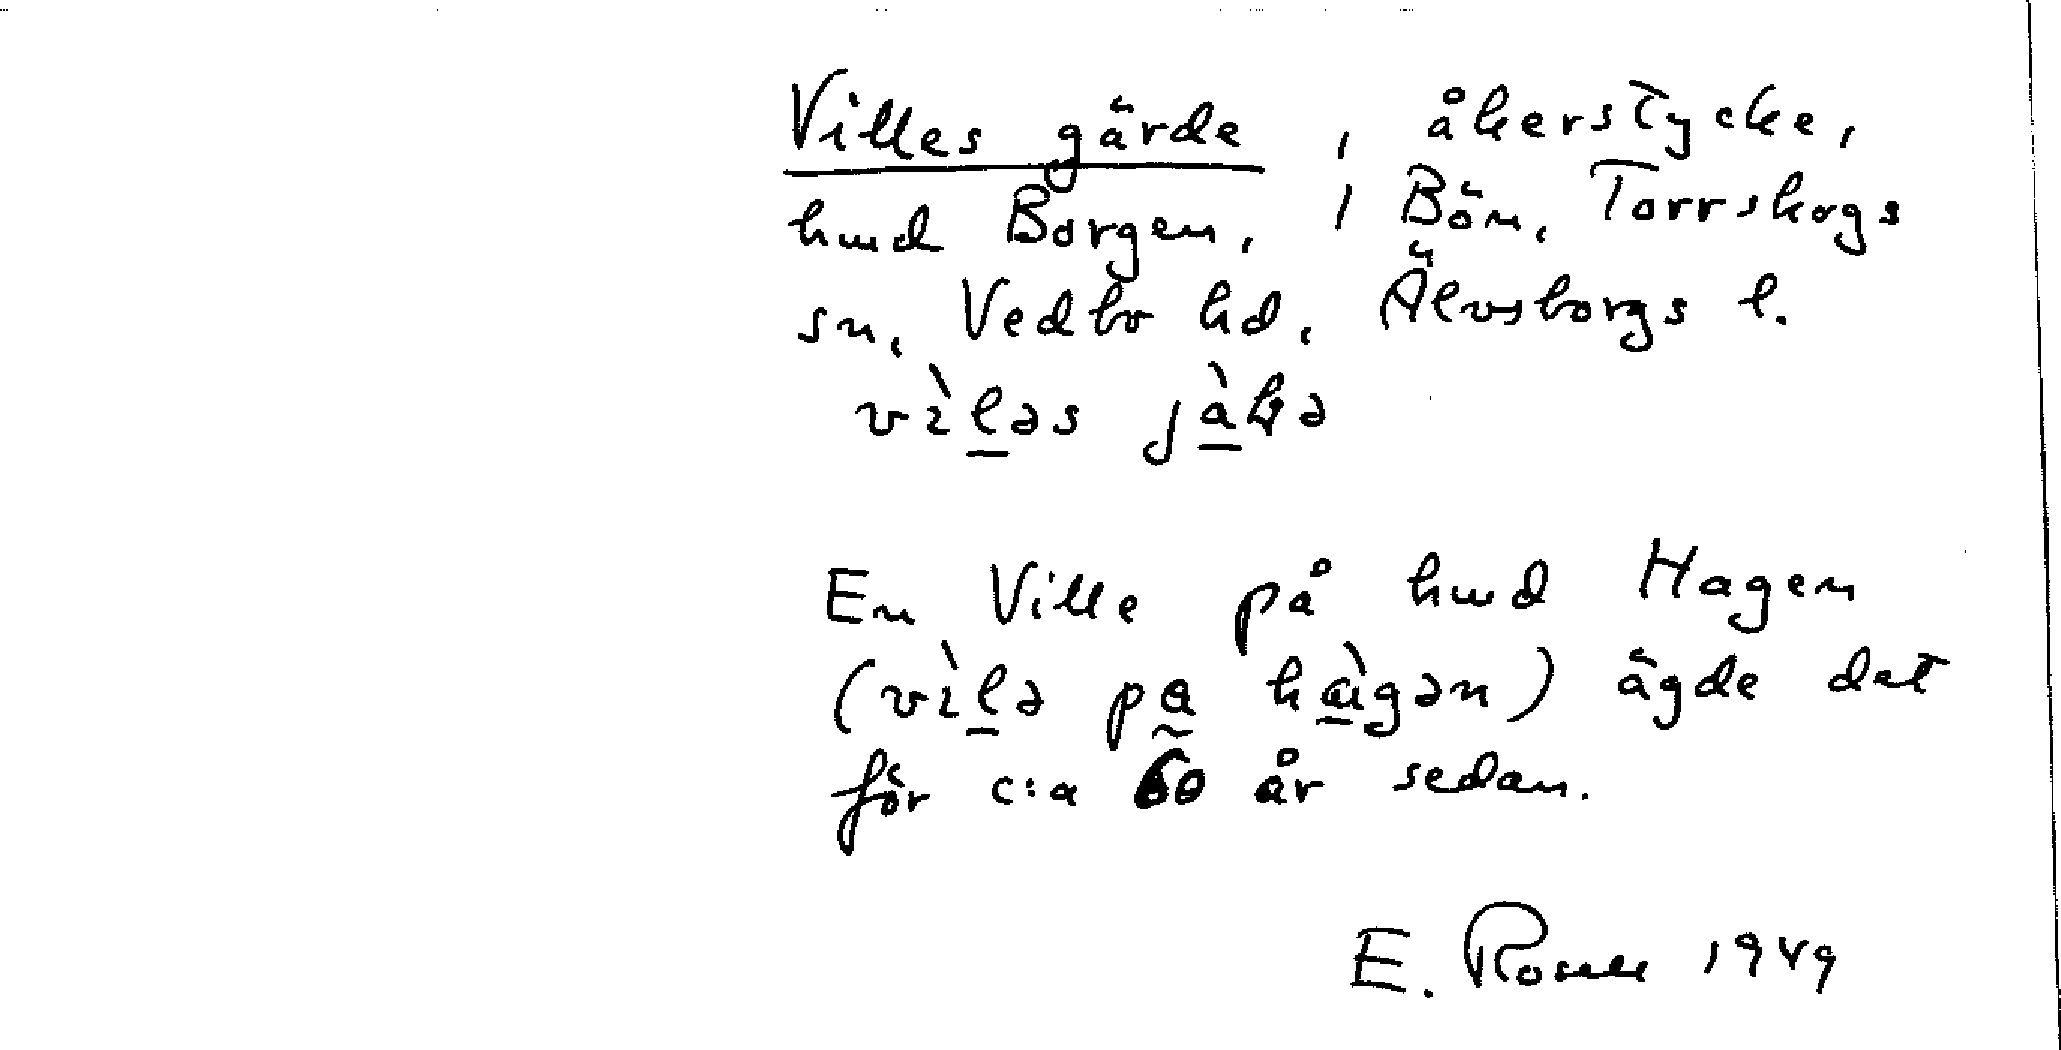 Villes gärde, åkerstycke,
hmd Borgen, i Bön, Torrskogs
sn, Vedbo hd, Älvsborgs l.
vìləs
En Ville på hmd Hagen
(vìlə pa hàgən) ägde det
för c:a 60 år sedan.
E. 1949